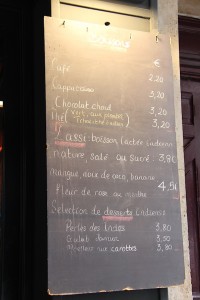 Boissons
€
Café 2,20
Cappuccino 3,20
Chocolat chaud 3,20
Thé (vert, aux 3,20
Lassi: boisson lactée indienne
nature, salé ou sucré: 3,80
mangue, noix de coco, banane
fleur de rose ou menthe 4,50
Sélection de desserts indiens
Perles des Indes 3,80
Gulab jamun 3,50
aux carottes 3,80